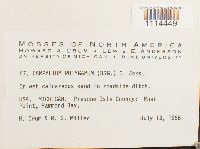 1114449
MOSSES OF NORTH AMERICA
HOWARD A. CRUM & LEWIS E. ANDERSON
UNIVERSITY OF MICHIGAN DUKE UNIVERSITY
67. CAMPYLIUM POLYGAMUM (BSG.) C. Jens.
In wet calcareous sand in roadside ditch.
USA. MICHIGAN. Presque Isle County:
Point, Hammond Bay.
H. Crum & N. G. Miller July 13, 1966